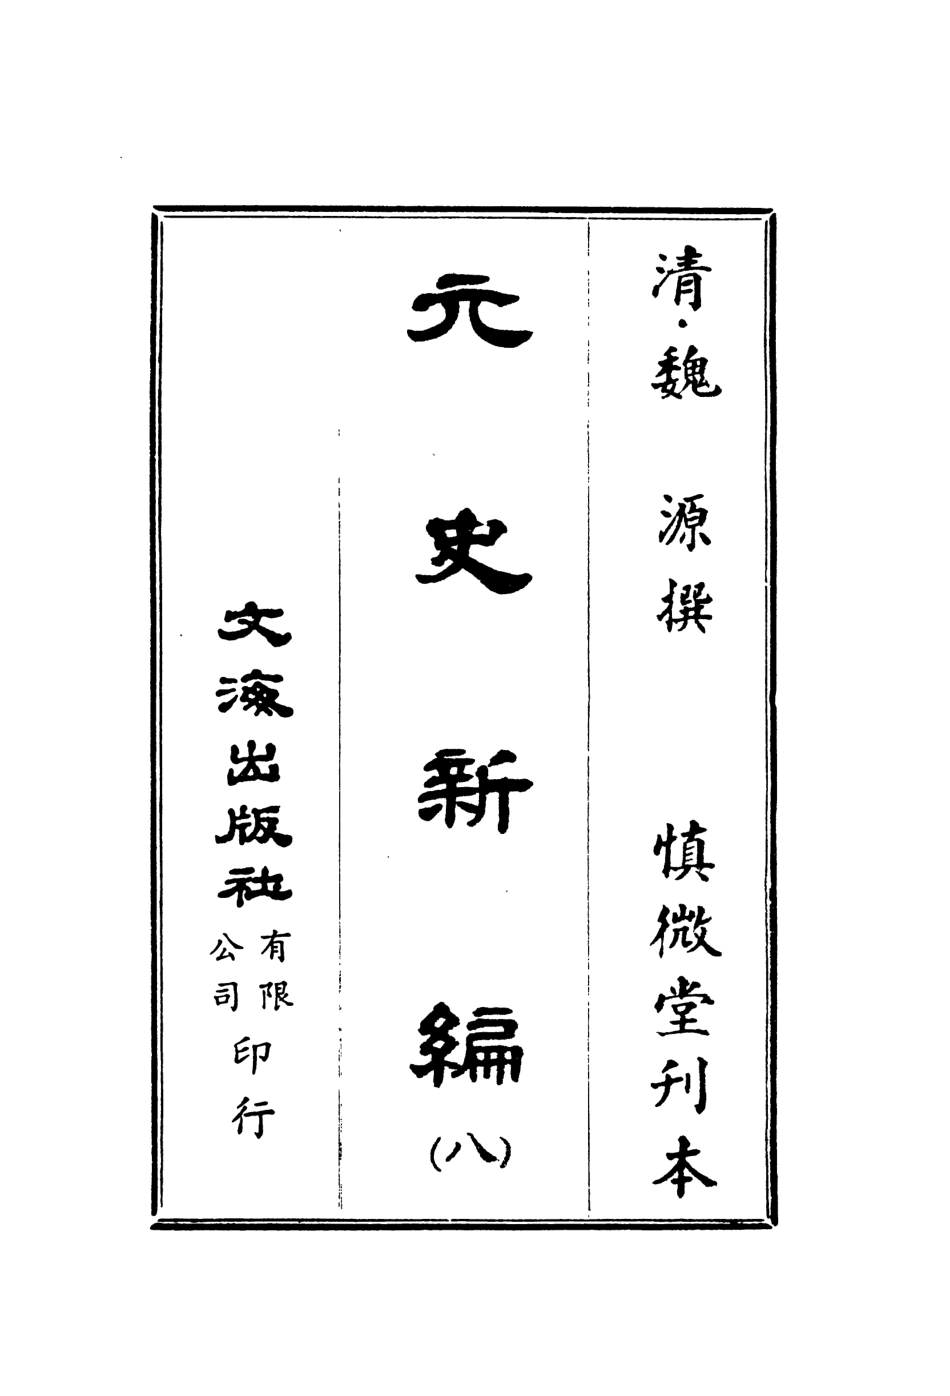 清·魏 源撰 慎微堂刊本
元史新編(八)
文海出版社有限公司印行